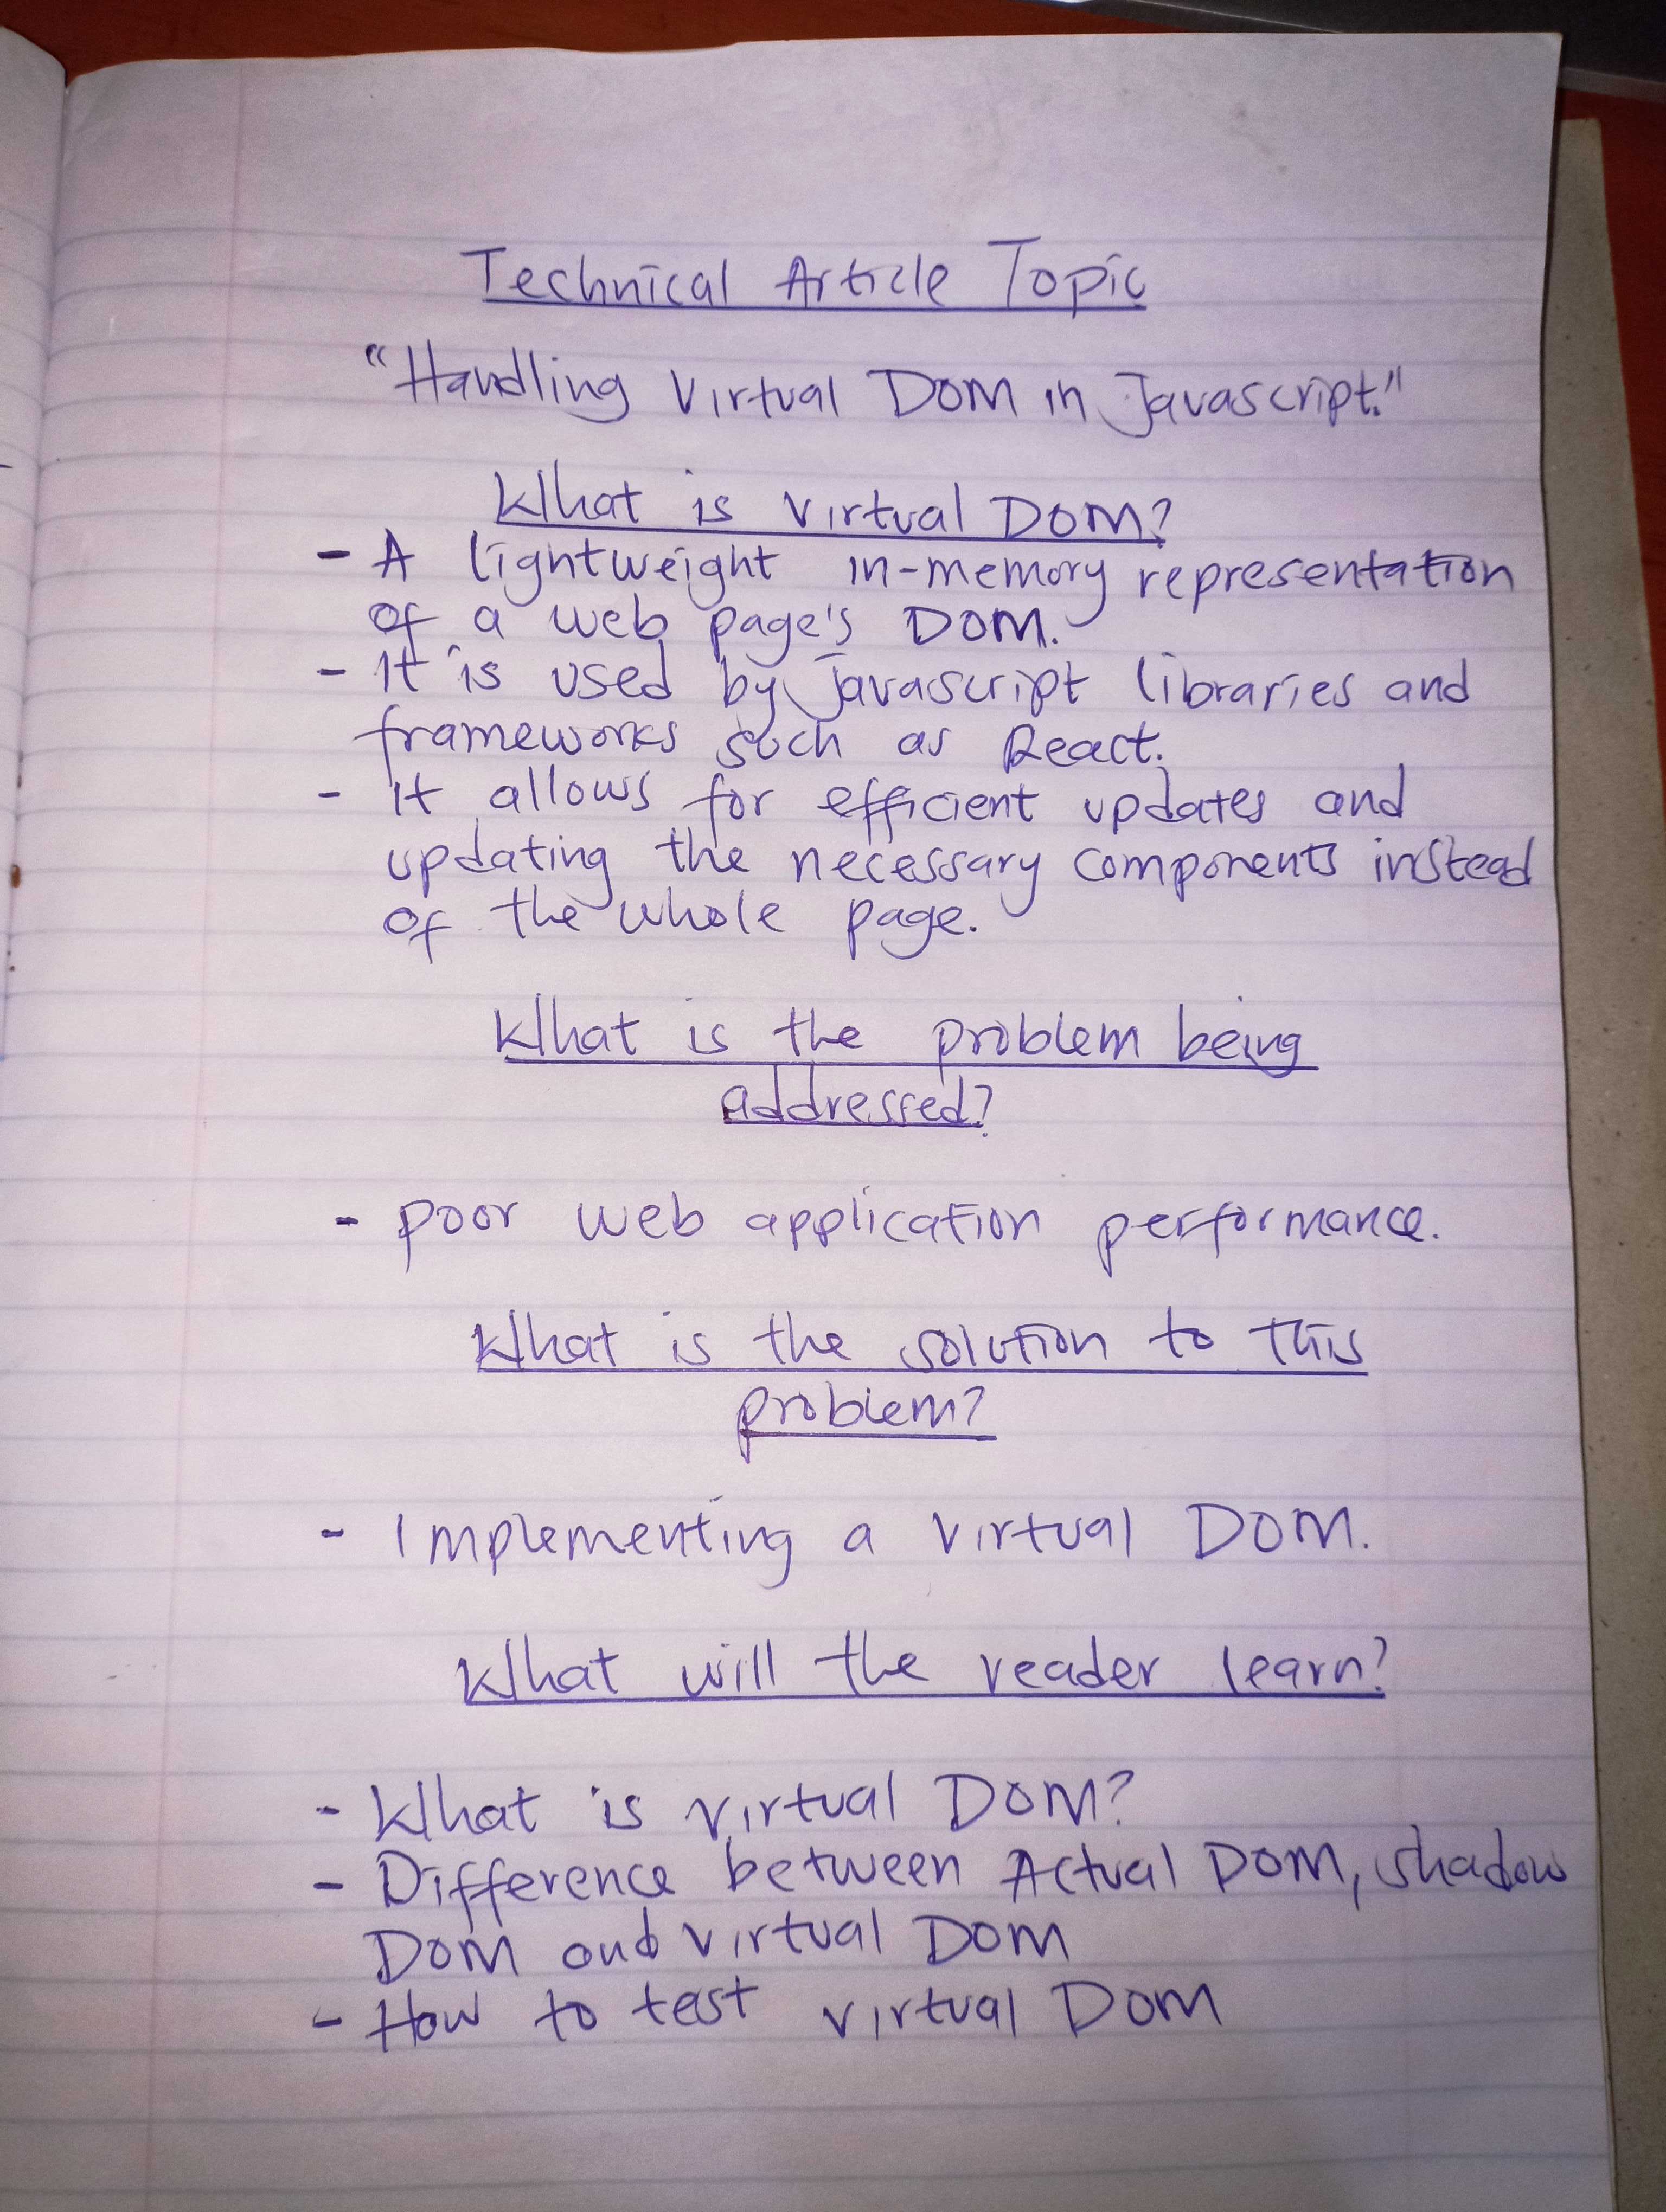 Technical Article Topic
"Handling Virtual DOM in Javascript."
What is Virtual DOM?
- A lightweight in-memory representation
of a web page's DOM.
- It is used by Javascript libraries and
frameworks such as React.
- It allows for efficient updates and
updating the necessary components instead
of the whole page.
What is the problem being
addressed?
- Poor web application performance.
What is the solution to this
problem?
- Implementing a Virtual DOM.
What will the reader learn?
- What is Virtual DOM?
- Difference between Actual DOM, Shadow
DOM and Virtual DOM
- How to test Virtual DOM